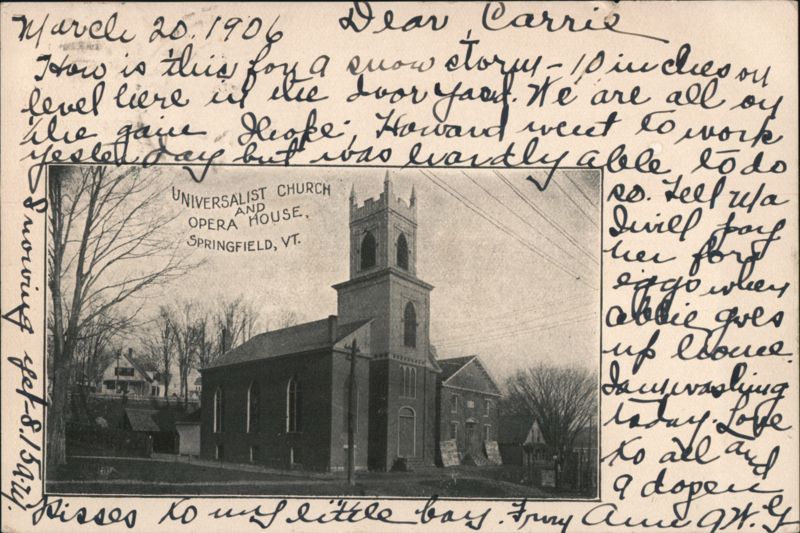 March 20, 1906 Dear Carrie
How is this for a snow storm - 10 inches on
level here in the door yard. We are all on
the gain I hope. Howard went to work
yesterday but was hardly able to do
so. Tell Ma
I will pay
her for
eggs when
Abbie goes
up home.
I am washing
today. Love
to all and
a dozen
kisses to my little boy. From Ann
Snowing yet - 8.15 A.M.
UNIVERSALIST CHURCH
AND
OPERA HOUSE,
SPRINGFIELD, VT.